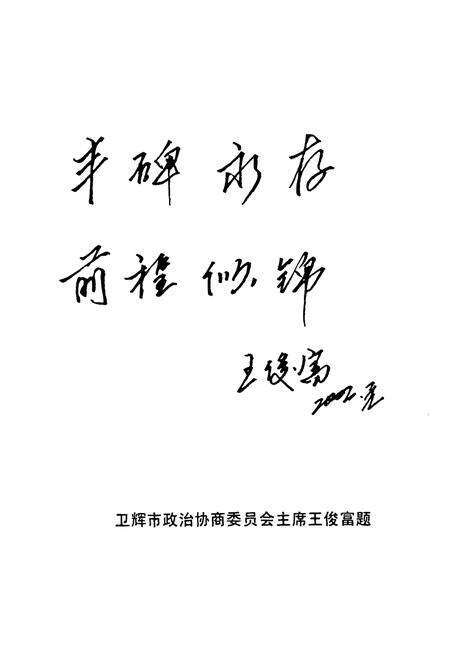 丰碑永存
前程似锦
王俊富
2002.元
卫辉市政治协商委员会主席王俊富题